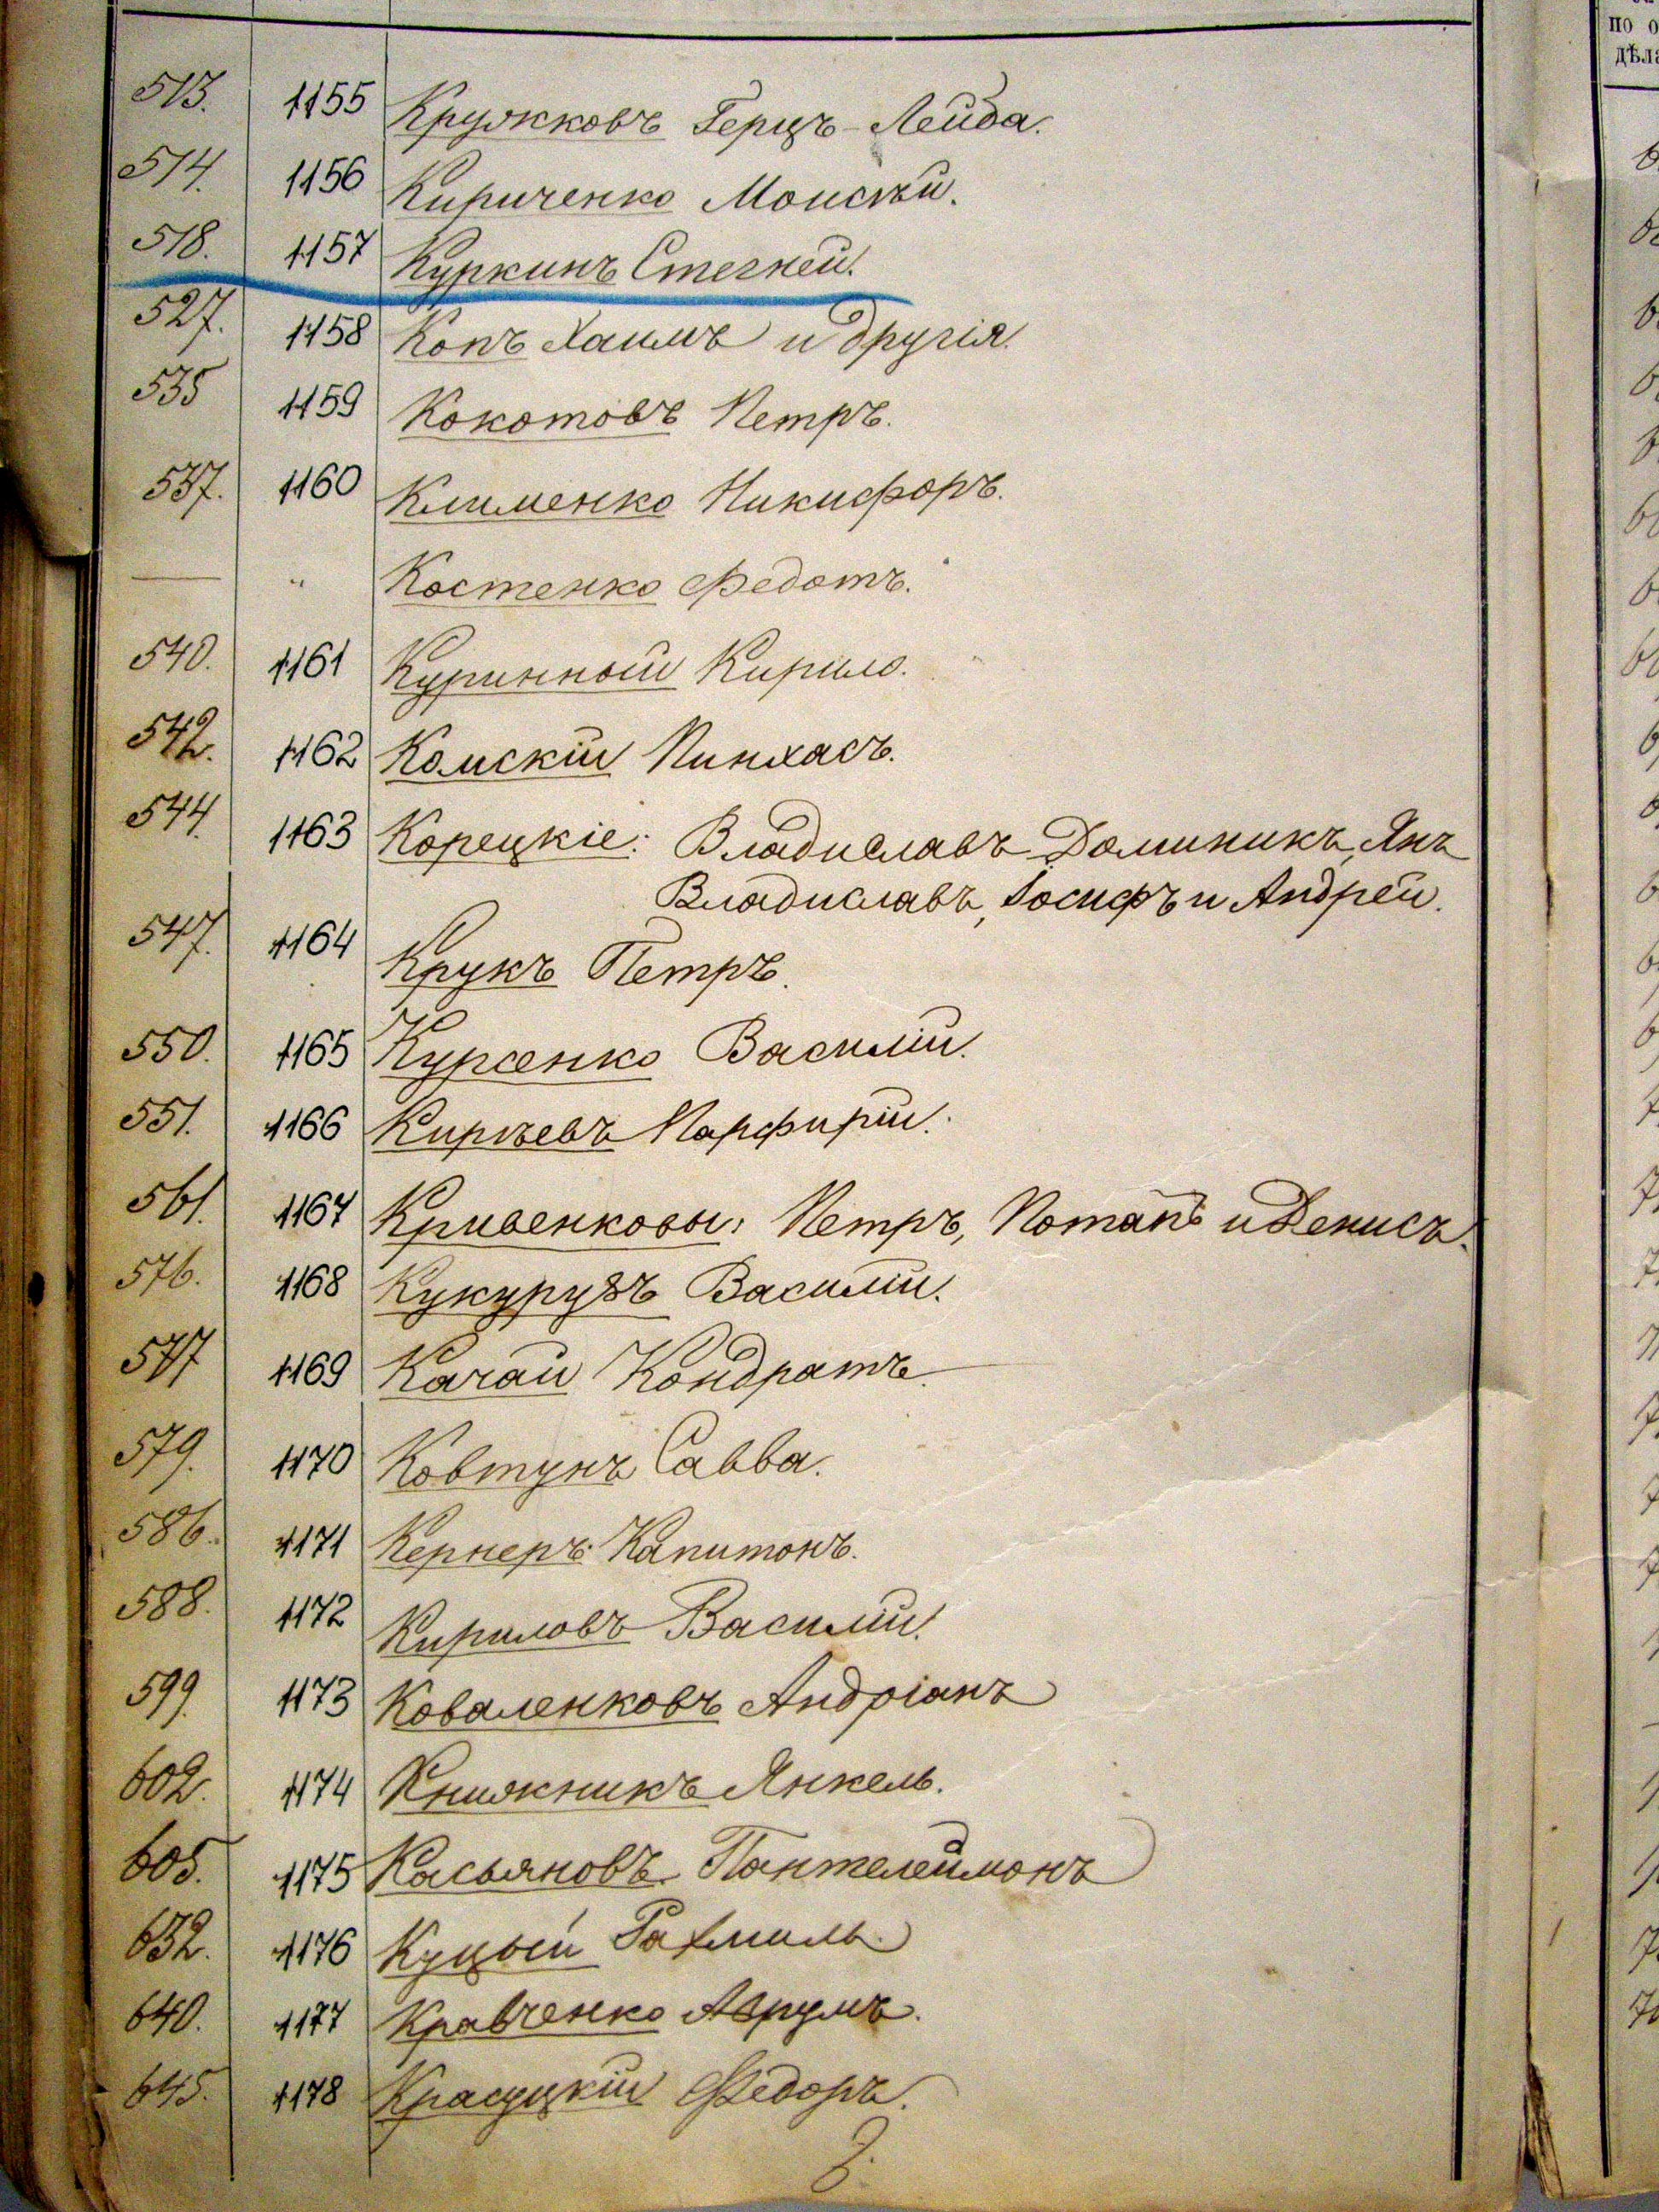 513. 1155 Кружковъ Герцъ-Лейба.
514. 1156 Кириченко Моисѣй.
518. 1157 Куркинъ Стегней.
527. 1158 Копъ Хаимъ и другія.
535 1159 Кокотовъ Петръ.
537. 1160 Клименко Никифоръ.
— " Костенко Федотъ.
540. 1161 Куринный Кирило.
542. 1162 Комскій Пинхасъ.
544. 1163 Корецкіе: Владиславъ-Доминикъ, Янъ
Владиславъ, Іосифъ и Андрей.
547. 1164 Крукъ Петръ.
550. 1165 Курсенко Василій.
551. 1166 Кирѣевъ Парфирій.
561. 1167 Кривенковы: Петръ, Потапъ и Денисъ.
576. 1168 Кукурузъ Василій.
577 1169 Качай Кондратъ.
579. 1170 Ковтунъ Савва.
586. 1171 Кернеръ Капитонъ.
588. 1172 Кириловъ Василій.
599. 1173 Коваленковъ Андріанъ
602. 1174 Книжникъ Янкель.
605. 1175 Касьяновъ Пантелеймонъ
632. 1176 Куцый Рахмиль.
640. 1177 Кравченко Аврумъ.
645. 1178 Красуцкій Федоръ.
по о
дѣла